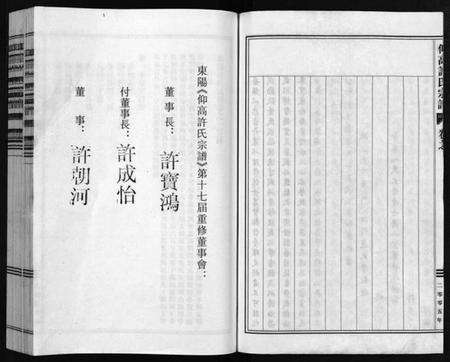 仰高許氏宗譜
二〇〇五年
東陽《仰高許氏宗譜》第十七屆重修董事會：
董事長：許寶鴻
付董事長：許成怡
董事：許朝河